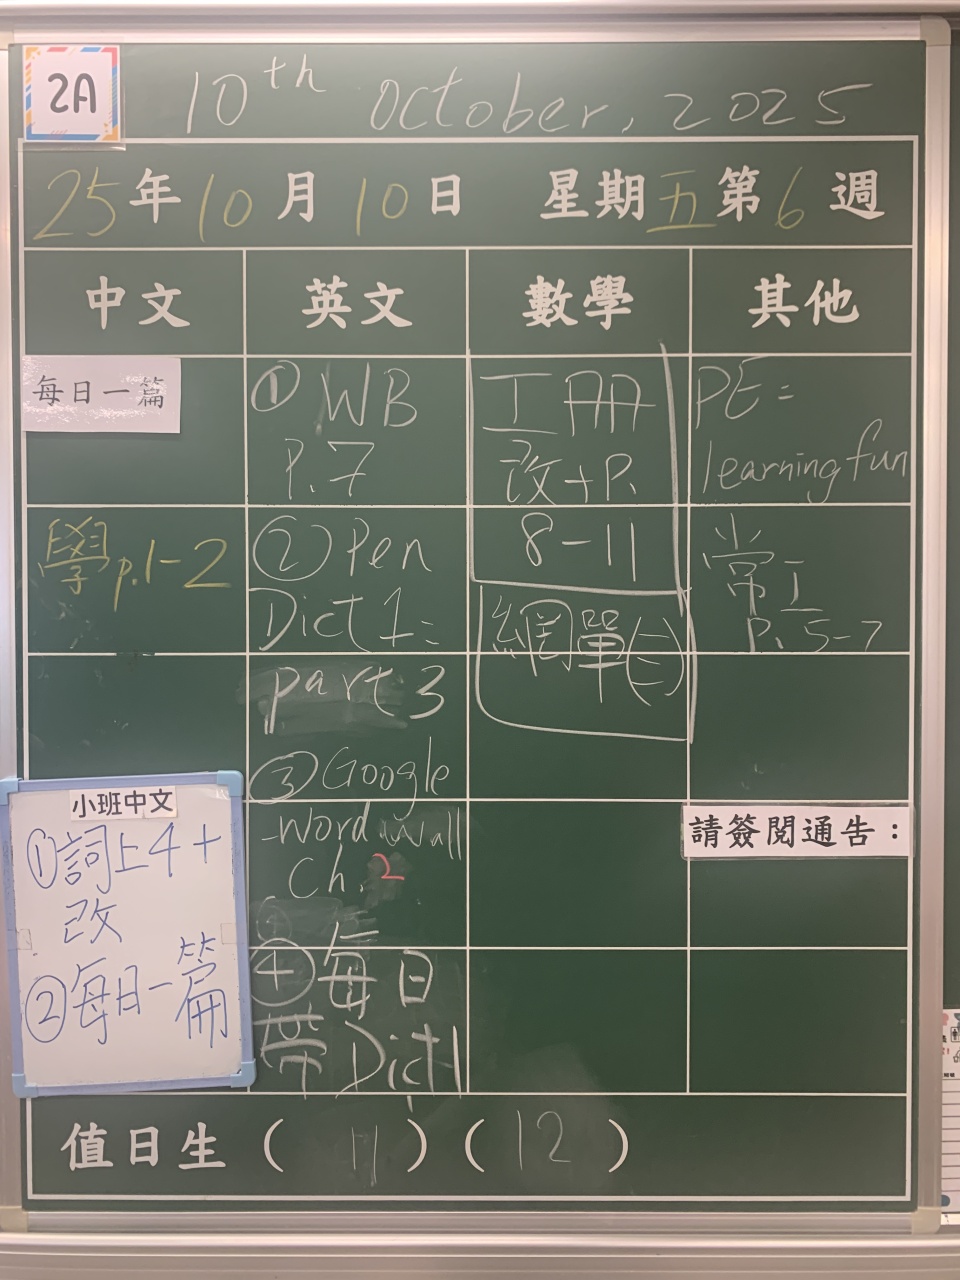 2A
10th October, 2025
25年10月10日 星期五第6週
中文 英文 數學 其他
每日一篇
學p.1-2
小班中文
①詞上4+
改
②每日一篇
① WB
P.7
② Pen
Dict 1:
part 3
③ Google
-Word Wall
Ch. 2
④ 每日
帶 Dict 1
工AA
改+P.
8-11
網單(二)
PE:
learning fun
常工
P. 5-7
請簽閱通告：
值日生 ( 11 ) ( 12 )